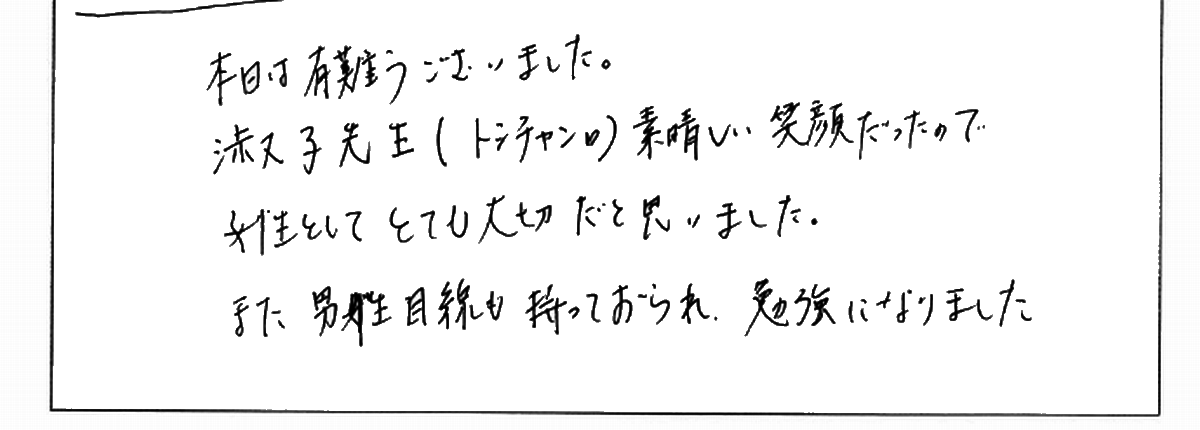 本日は有難うございました。
淑子先生(トシチャンの)素晴しい笑顔だったので
女性として とても大切だと思いました。
また 男性目線も持っておられ、勉強になりました